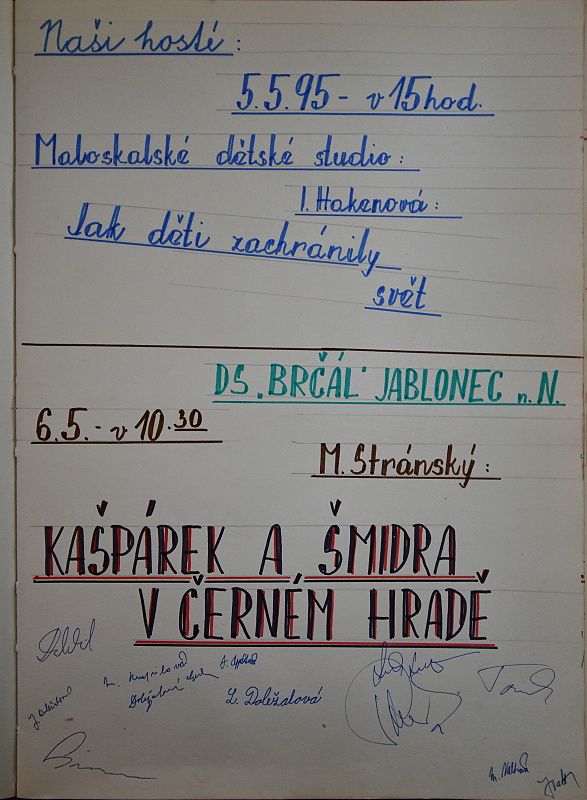 Naši hosté:
5.5.95 - v 15 hod.
Maloskalské dětské studio:
I. Hakenová:
Jak děti zachránily
svět
DS „BRČÁL" JABLONEC n. N.
6.5. - v 10.30
M. Stránský:
KAŠPÁREK A ŠMIDRA
V ČERNÉM HRADĚ
L. Doležalová